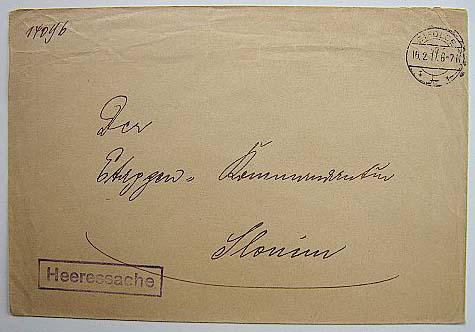 14096
SIEDLCE
16.2.17.6-7N
Der
Etappen-Kommandantur
Slonim
Heeressache